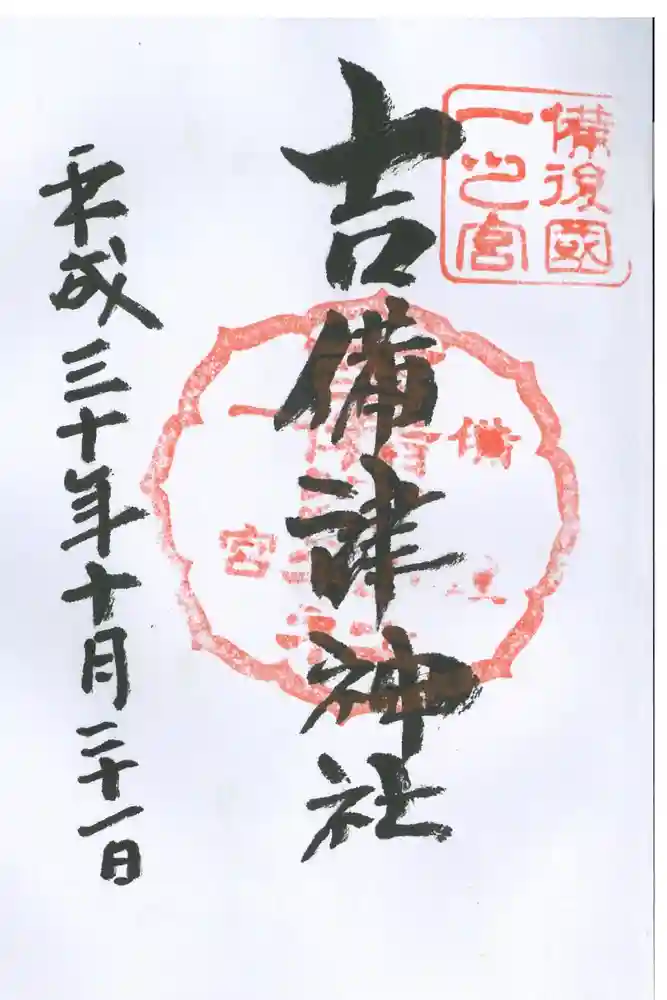 備後國
一之宮
吉備津神社
平成三十年十月二十一日